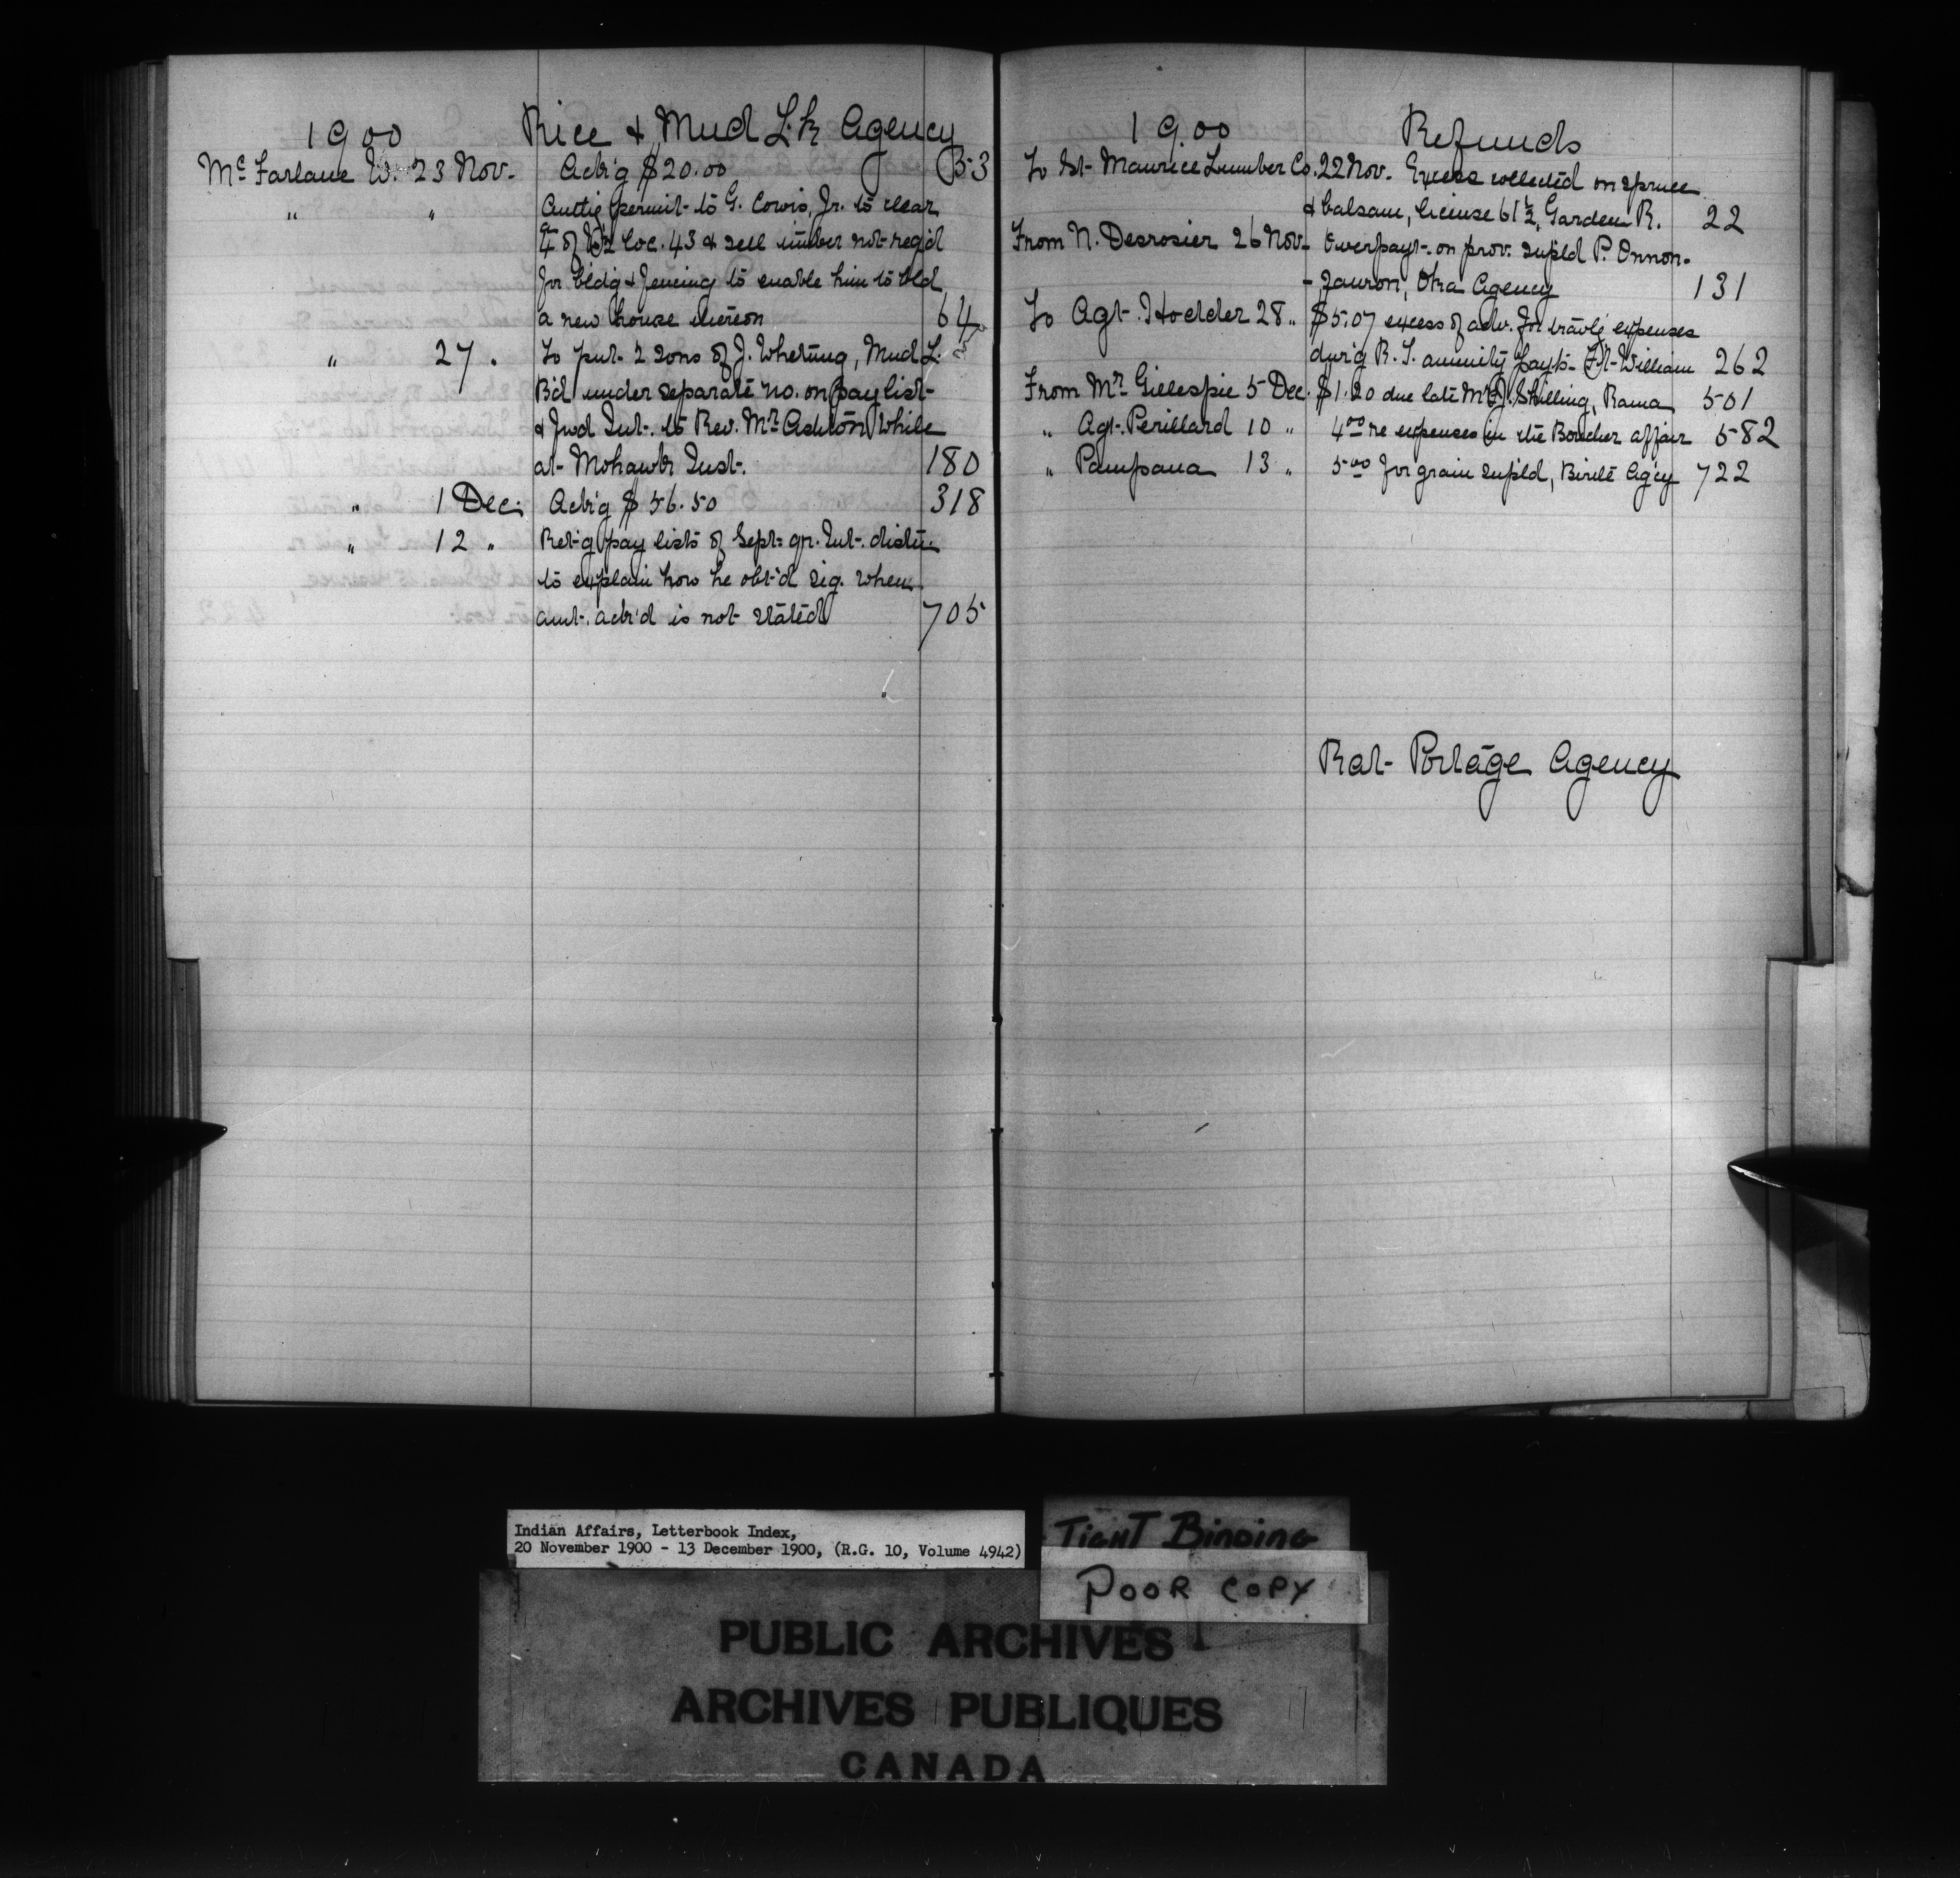 1900 Rice & Mud Lk Agency
McFarlane W. 23 Nov. Ack'g $20.00 53
" " permit to G. Cowie, Jr. to clear
of Loc. 43 & sell timber not req'd
for bldg & fencing to enable him to bld
a new house thereon 64
" 27. To put 2 sons of J. Whetung, Mud L.
B'd under separate no. on pay list
& fwd Int. to Rev. Mr Ashton while
at Mohawk Inst. 180
" 1 Dec. Ack'g $56.50 318
" 12 " Ret'g pay lists of Sept. qr. Int. distn.
to explain how he obt'd sig. when
amt. ack'd is not stated 705
1900 Refunds
To St. Maurice Lumber Co. 22 Nov. Excess collected on spruce
& balsam, license 61½, Garden R. 22
From N. Desrosier 26 Nov. Overpayt. on prov. supld P. Onnon-
-, Oka Agency 131
To Agt. Hodder 28 " $5.07 excess of adv. for trav'lg expenses
dur'g R. S. annuity payts. Ft. William 262
From Mr Gillespie 5 Dec. $1.20 due late Shilling, Rama 501
" Agt. Perillard 10 " 4.00 re expenses in the Boucher affair 582
" Pampana 13 " 5.00 for grain supld, Birtle Ag'cy 722
Rat Portage Agency
Indian Affairs, Letterbook Index,
20 November 1900 - 13 December 1900, (R.G. 10, Volume 4942)
TIGHT BINDING
POOR COPY
PUBLIC ARCHIVES
ARCHIVES PUBLIQUES
CANADA